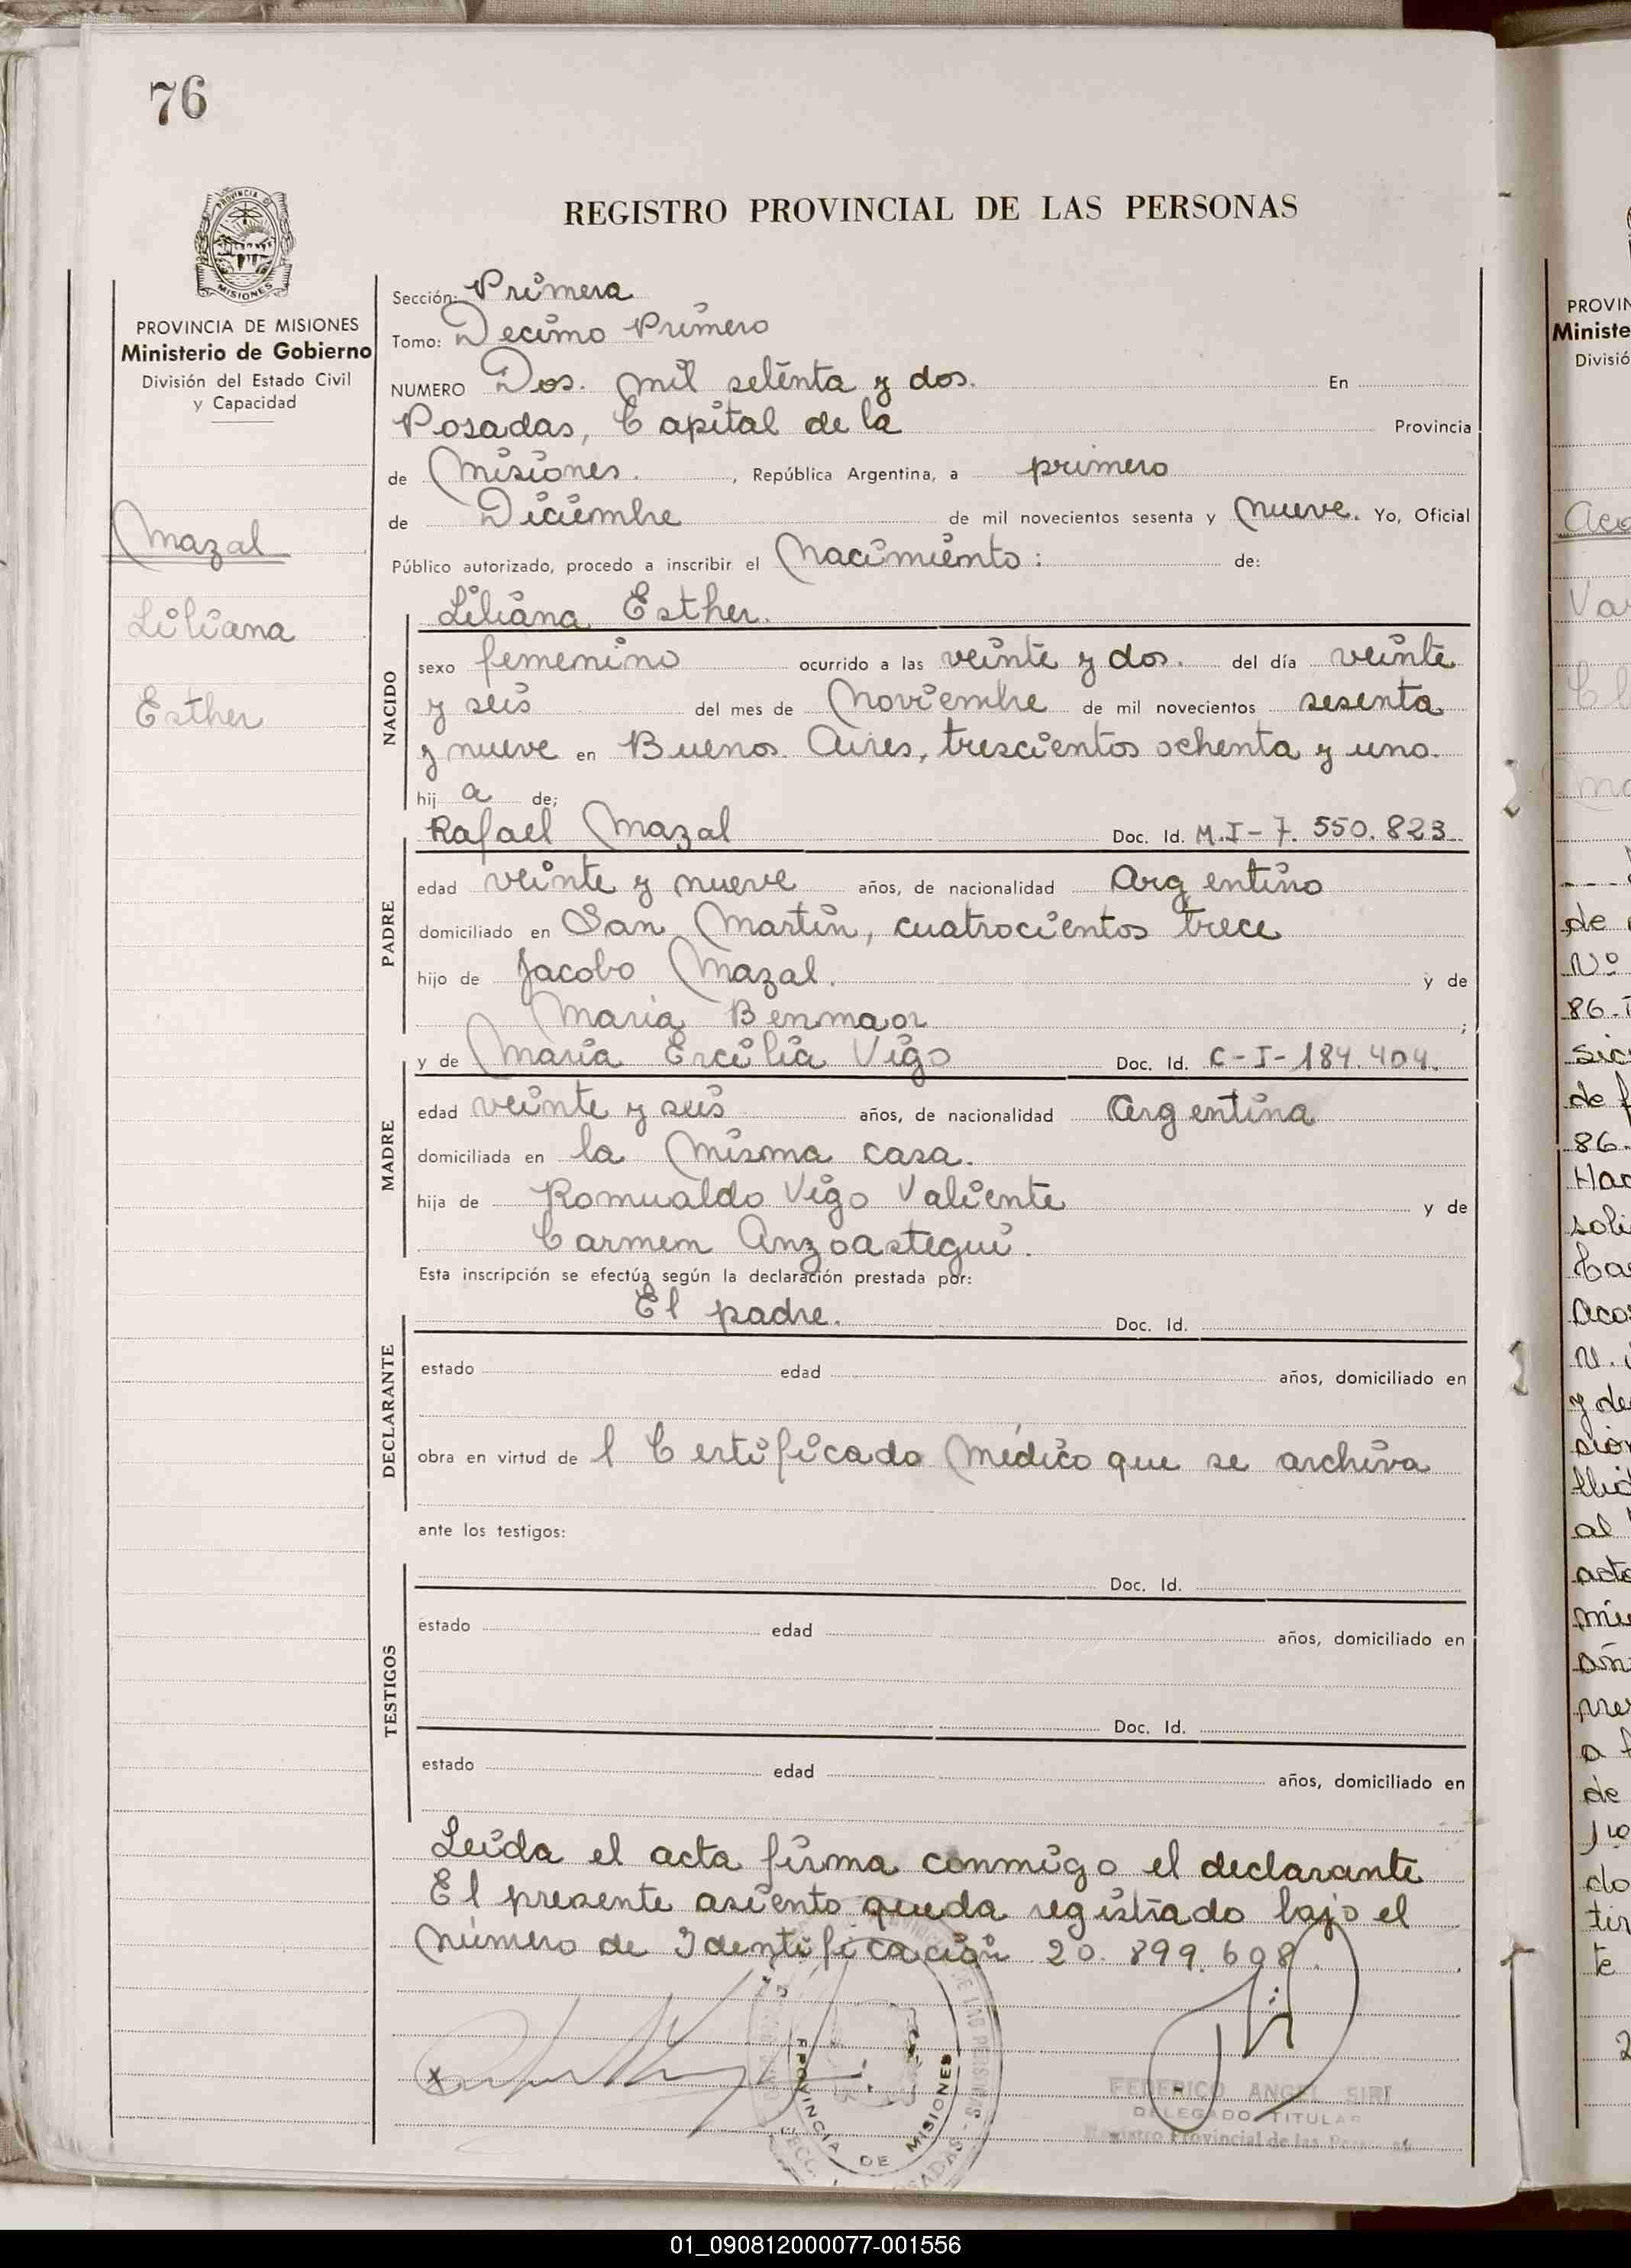 76
PROVINCIA DE
MISIONES
PROVINCIA DE MISIONES
Ministerio de Gobierno
División del Estado Civil
y Capacidad
Mazal
Liliana
Esther
REGISTRO PROVINCIAL DE LAS PERSONAS
Sección: Primera
Tomo: Decimo Primero
NUMERO Dos. mil setenta y dos. En
Posadas, Capital de la Provincia
de Misiones. , República Argentina, a primero
de Diciembre de mil novecientos sesenta y nueve. Yo, Oficial
Público autorizado, procedo a inscribir el Nacimiento: de:
Liliana Esther.
NACIDO
sexo femenino ocurrido a las veinte y dos. del día veinte
y seis del mes de Noviembre de mil novecientos sesenta
y nueve en Buenos Aires, trescientos ochenta y uno.
hij a de;
Rafael Mazal Doc. Id. M.I-7.550.823
PADRE
edad veinte y nueve años, de nacionalidad Argentino
domiciliado en San Martin, cuatrocientos trece
hijo de Jacobo Mazal. y de
Maria Benmaor ;
y de Maria Ercilia Vigo Doc. Id. C-I-184.404.
MADRE
edad veinte y seis años, de nacionalidad Argentina
domiciliada en la misma casa.
hija de Romualdo Vigo Valiente y de
Carmen Anzoastegui.
Esta inscripción se efectúa según la declaración prestada por:
El padre. Doc. Id.
DECLARANTE
estado edad años, domiciliado en
obra en virtud de l Certificado Médico que se archiva
ante los testigos:
TESTIGOS
Doc. Id.
estado edad años, domiciliado en
Doc. Id.
estado edad años, domiciliado en
Leida el acta firma conmigo el declarante
El presente asiento queda registrado bajo el
número de Identificación 20.899.608.
PROVINCIA DE MISIONES
FEDERICO ANGEL SIRI
DELEGADO TITULAR
Registro Provincial de las Personas
01_090812000077-001556